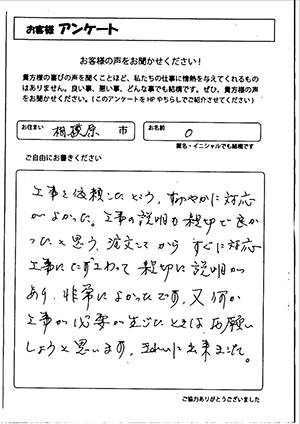 お客様 アンケート
お客様の声をお聞かせください！
貴方様の喜びの声を聞くことほど、私たちの仕事に情熱を与えてくれるもの
はありません。良い事、悪い事、どんな事でも結構です。ぜひ、貴方様の声
をお聞かせください。(このアンケートをHPやちらしでご紹介させてください)
お住まい 相模原 市 お名前 O
匿名・イニシャルでも結構です
ご自由にお書きください
工事を依頼したところ、すみやかに対応
がよかった。工事の説明も親切で良か
ったと思う、注文してから すぐに対応
工事にたずさわって 親切に説明が
あり、非常によかったです。又何か
工事が必要が生じたときは お願い
しようと思います。きれいに出来ました。
ご協力ありがとうございました